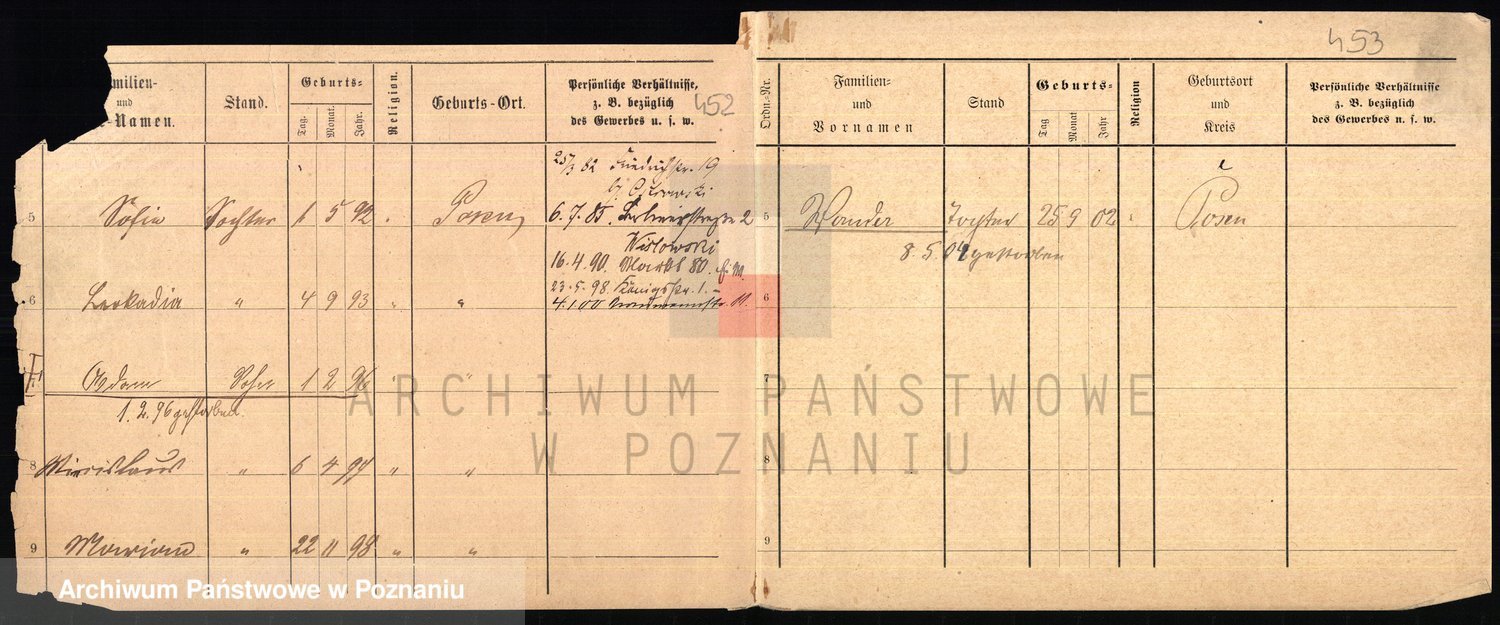 453
452
milien-
und
Namen.
Stand.
Geburts-
Tag.
Monat.
Jahr.
Religion.
Geburts-Ort.
Persönliche Verhältnisse,
z. B. bezüglich
des Gewerbes u. s. w.
Ordn.-Nr.
Familien-
und
Vornamen
Stand
Geburts-
Tag
Monat
Jahr
Religion
Geburtsort
und
Kreis
Persönliche Verhältnisse
z. B. bezüglich
des Gewerbes u. s. w.
25/3 82 Friedrichstr. 19
5 Sofia Tochter 1 5 92 Posen 6.7.85. Berlinerstraße 2
Wislowski
16.4.90. Markt 80.
23.5.98. Königsstr. 1.
6 Leokadia " 4 9 93 " " 4.1.00
7 Adam Sohn 1 2 96 " "
1.2.96 gestorben.
8 " 6 4 97 " "
9 Marian " 22 11 98 " "
5 Wanda Tochter 25 9 02 Posen
8.5.04 gestorben
6
7
8
9
ARCHIWUM PAŃSTWOWE
W POZNANIU
Archiwum Państwowe w Poznaniu